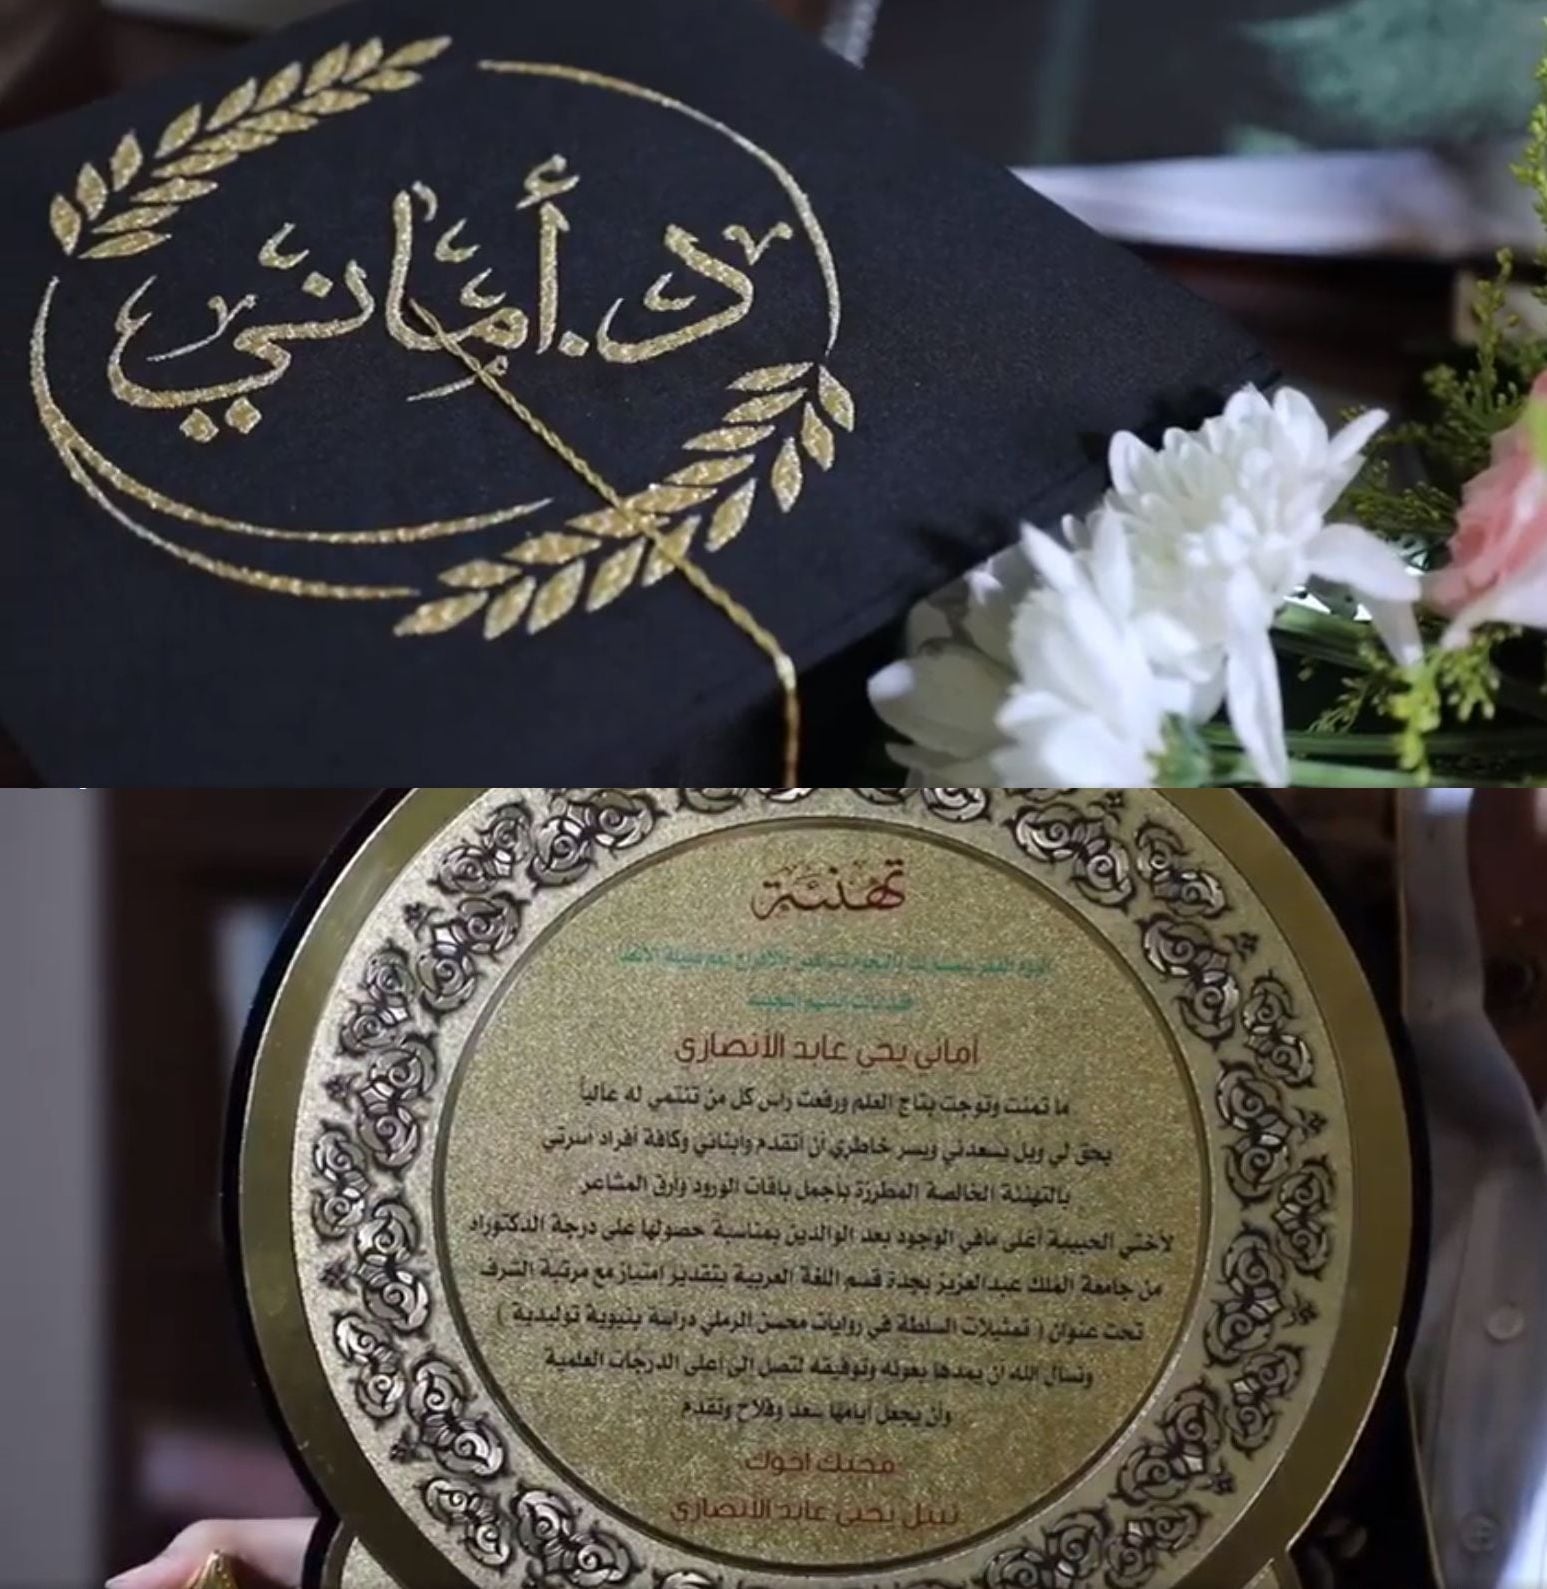 د.أماني
تهنئة
أماني يحي عابد الأنصاري
ما تمنت وتوجت بتاج العلم ورفعت راس كل من تنتمي له عالياً
يحق لي وبل يسعدني ويسر خاطري أن أتقدم وأبنائي وكافة أفراد اسرتي
بالتهنئة الخالصة المطرزة بأجمل باقات الورود وأرق المشاعر
لأختي الحبيبة أغلى مافي الوجود بعد الوالدين بمناسبة حصولها على درجة الدكتوراه
من جامعة الملك عبدالعزيز بجدة قسم اللغة العربية بتقدير امتياز مع مرتبة الشرف
تحت عنوان ( تمثيلات السلطة في روايات محسن الرملي دراسة بنيوية توليدية )
ونسال الله ان يمدها بعونه وتوفيقه لتصل الى أعلى الدرجات العلمية
وأن يجعل أيامها سعد وفلاح وتقدم
محبك اخوك
نبيل يحي عابد الأنصاري